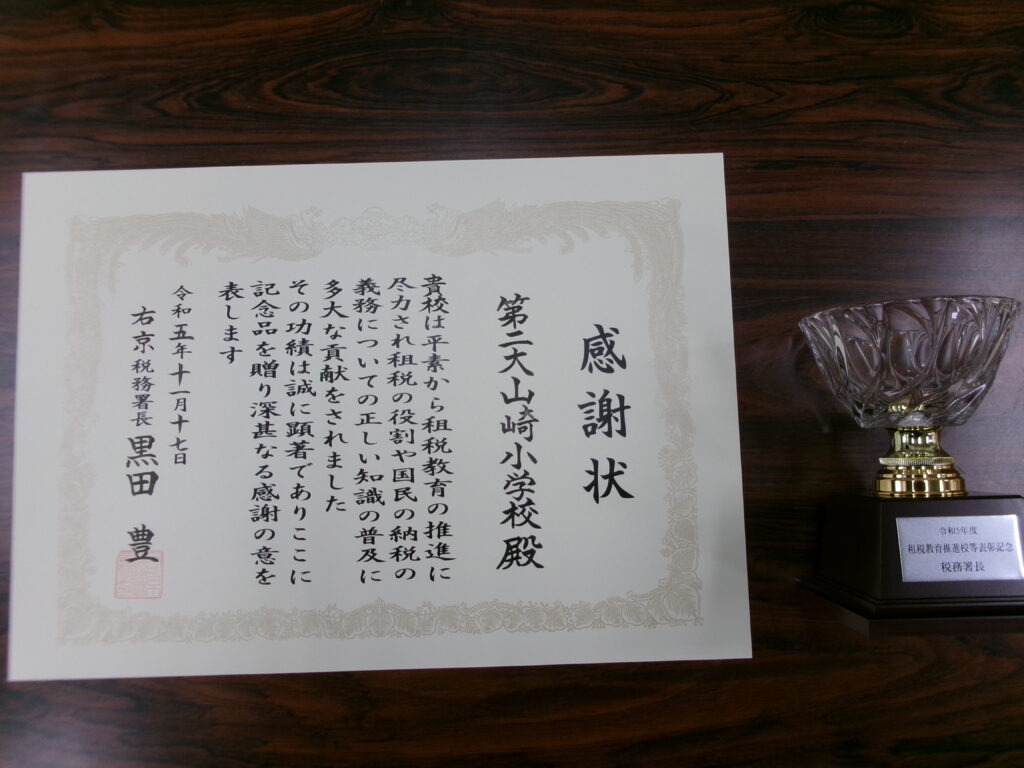 感謝状
第二大山崎小学校殿
貴校は平素から租税教育の推進に
尽力され租税の役割や国民の納税の
義務についての正しい知識の普及に
多大な貢献をされました
その功績は誠に顕著でありここに
記念品を贈り深甚なる感謝の意を
表します
令和五年十一月十七日
右京税務署長 黒田 豊
令和5年度
租税教育推進校等表彰記念
税務署長